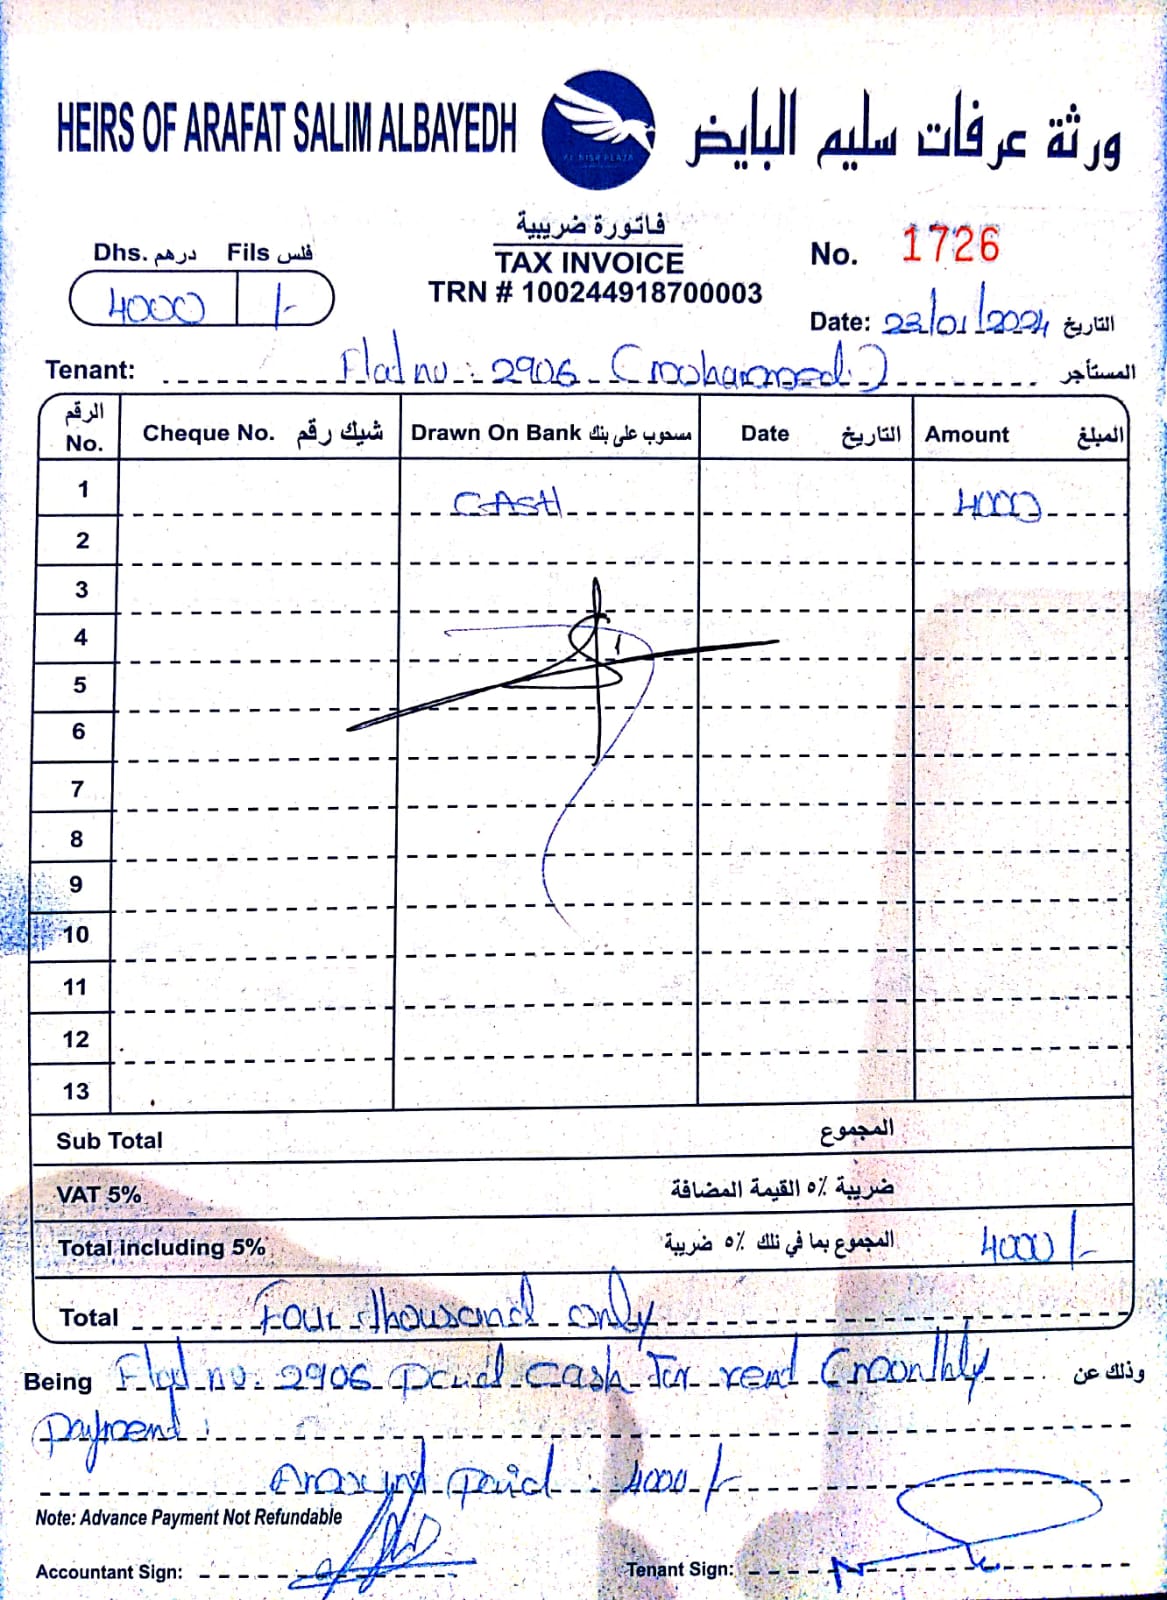 HEIRS OF ARAFAT SALIM ALBAYEDH
ورثة عرفات سليم البايض
AL NISR PLAZA
فاتورة ضريبية
TAX INVOICE
TRN # 100244918700003
Dhs. درهم Fils فلس
4000 /-
No. 1726
Date: 23/01/2024 التاريخ
Tenant: Flat no: 2906 (mohammed) المستأجر
الرقم No. Cheque No. شيك رقم Drawn On Bank مسحوب على بنك Date التاريخ Amount المبلغ
1 CASH 4000
2
3
4
5
6
7
8
9
10
11
12
13
Sub Total المجموع
VAT 5% ضريبة ٥٪ القيمة المضافة
Total including 5% المجموع بما في ذلك ٥٪ ضريبة 4000/-
Total Four thousand only
Being Flat no. 2906 paid cash for rent (monthly وذلك عن
payment
Amount paid : 4000/-
Note: Advance Payment Not Refundable
Accountant Sign:
Tenant Sign: